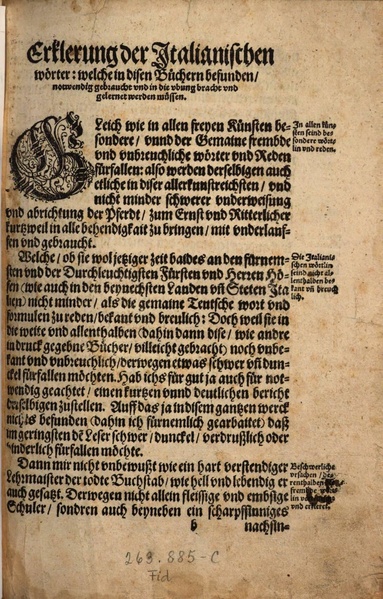 Erklerung der Italianischen
wörter: welche in disen Büchern befunden/
notwendig gebraucht vnd in die vbung bracht vnd
gelernet werden müssen.
GLeich wie in allen freyen Künsten be-
sondere/ vnnd der Gemaine frembde
vnd vnbreuchliche wörter vnd Reden
fürfallen: also werden derselbigen auch
etliche in diser allerkunstreichsten/ vnd
nicht minder schwerer vnderweisung
vnd abrichtung der Pferdt/ zum Ernst vnd Ritterlicher
kurtzweil in alle behendigkait zu bringen/ mit vnderlauf-
fen vnd gebraucht.
In allen kün-
sten seind be-
sondere wört-
lin vnd reden.
Welche/ ob sie wol jetziger zeit baides an den fürnem-
sten vnd der Durchleuchtigsten Fürsten vnd Herren Hö-
fen (wie auch in den beynechsten Landen vñ Steten Ita
lien) nicht minder/ als die gemaine Teutsche wort vnd
formulen zu reden/ bekant vnd breulich: Doch weil sie in
die weite vnd allenthalben (dahin dann dise/ wie andre
in druck gegebne Bücher/ villeicht gebracht) noch vnbe-
kant vnd vnbreuchlich/ derwegen etwas schwer vñ dunc-
kel fürfallen möchten. Hab ichs für gut ja auch für not-
wendig geachtet/ einen kurtzen vnnd deutlichen bericht
derselbigen zustellen. Auff das ja in disem gantzen werck
nichts befunden (dahin ich fürnemlich gearbaitet) daß
im geringsten dē Leser schwer/ dunckel/ verdrußlich oder
hinderlich fürfallen möchte.
Die Italianis
schen wörtlin
seind nicht al-
lenthalben be-
kant vñ breuch
lich.
Dann mir nicht vnbewußt wie ein hart verstendiger
Lehrmaister der todte Buchstab/ wie hell vnd lebendig er
auch gesatzt. Derwegen nicht allein fleissige vnd embsige
Schuler/ sondern auch beyneben ein scharpffsinniges
b nachsin-
Beschwerliche
vrsachen/
renthalben
frembde
lin
vnd
263.885-C
Fid